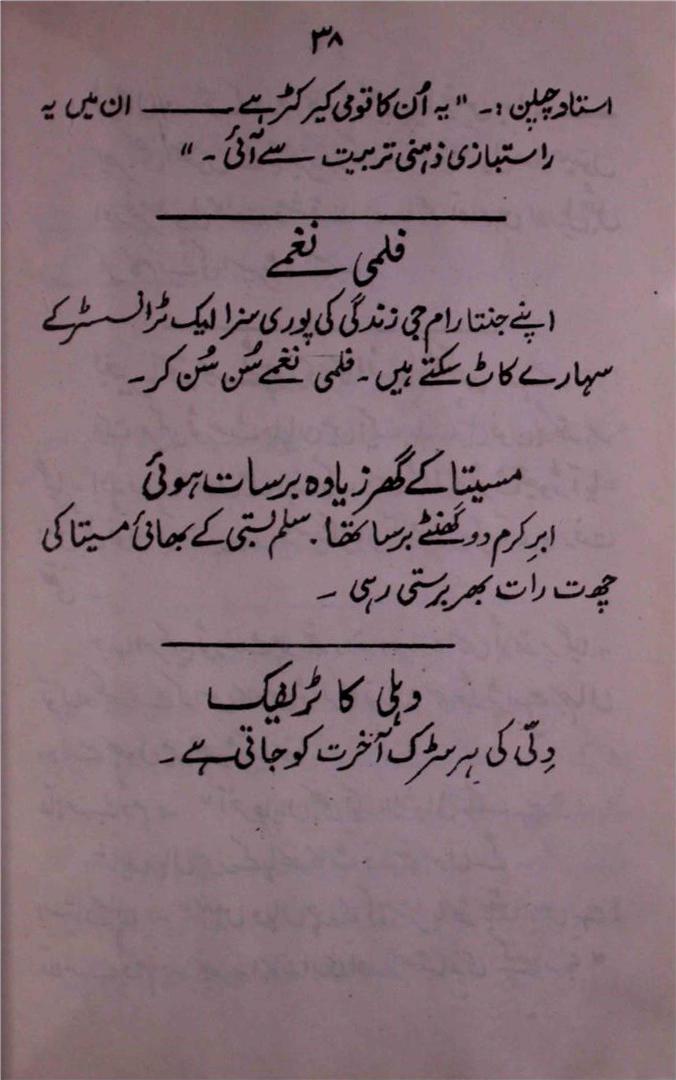 ۳۸
استاد چلپن :۔ "یہ اُن کا قومی کیرکٹر ہے ——— ان میں یہ
راستبازی ذہنی تربیت سے آئی ۔"
فلمی نغمے
اپنے جنتا رام جی زندگی کی پوری سزا ایک ٹرانسسٹر کے
سہارے کاٹ سکتے ہیں ۔ فلمی نغمے سُن سُن کر ۔
مسیتا کے گھر زیادہ برسات ہوئی
ابرِ کرم دو گھنٹے برسا تھا . سلم بستی کے بھائی مسیتا کی
چھت رات بھر برستی رہی ۔
دہلی کا ٹریفیک
دِلّی کی ہر سڑک آخرت کو جاتی ہے ۔